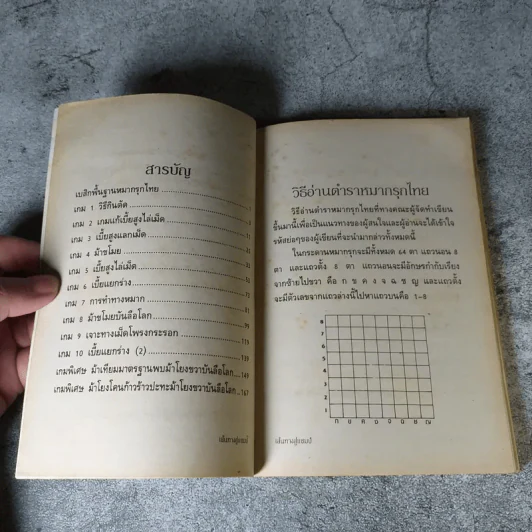 สารบัญ
เบสิกพื้นฐานหมากรุกไทย
เกม 1 วิธีกินตัด
เกม 2 เกมแก้เบี้ยสูงไล่เม็ด
เกม 3 เบี้ยสูงแลกเม็ด
เกม 4 ม้าขโมย
เกม 5 เบี้ยสูงไล่เม็ด
เกม 6 เบี้ยแยกร่าง
เกม 7 การทำทางหมาก
เกม 8 ม้าขโมยบันลือโลก
เกม 9 เจาะทางเม็ดโพรงกระรอก 119
เกม 10 เบี้ยแยกร่าง (2) 139
เกมพิเศษ ม้าเทียมมาตรฐานพบม้าโยงขวาบันลือโลก 149
เกมพิเศษ ม้าโยงโคนก้าวร้าวปะทะม้าโยงขวาบันลือโลก 167
เส้นทางสู่แชมป์
วิธีอ่านตำราหมากรุกไทย
วิธีอ่านตำราหมากรุกไทยที่ทางคณะผู้จัดทำเขียน
ขึ้นมานี้เพื่อเป็นแนวทางของผู้สนใจและผู้อ่านจะได้เข้าใจ
รหัสย่อๆของผู้เขียนที่จะนำมากล่าวทั้งหมดนี้
ในกระดานหมากรุกจะมีทั้งหมด 64 ตา แถวนอน 8
ตา และแถวตั้ง 8 ตา แถวนอนจะมีอักษรกำกับเรียง
จากซ้ายไปขวา คือ ก ข ค ง จ ฉ ช ญ และแถวตั้ง
จะมีตัวเลขจากแถวล่างนี้ไปหาแถวบนคือ 1-8
8
7
6
5
4
3
2
1
ก ข ค ง จ ฉ ช ญ
เส้นทางสู่แชมป์